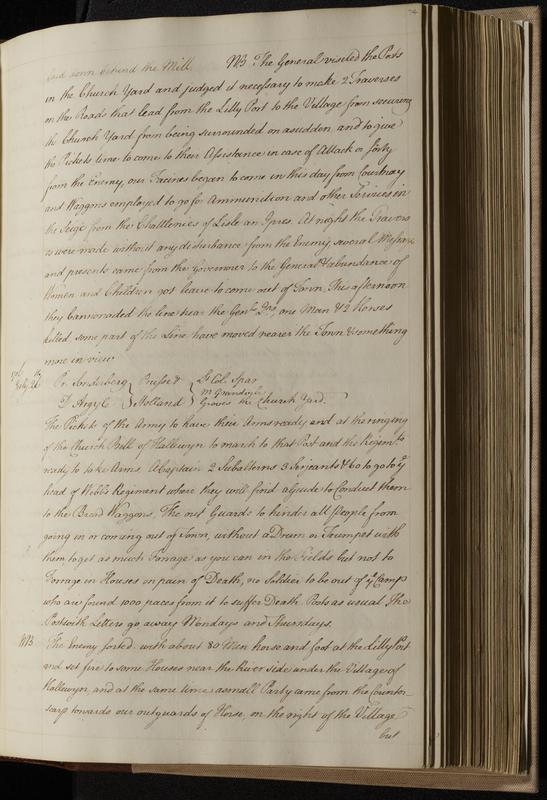 laid down behind the Mill NB The General visited the Posts
in the Church Yard and judged it necessary to make 2 Traverses
on the Roads that lead from the Lilly Port to the Village from securing
the Church Yard from being surrounded on a suddon, and to give
the Pickets time to come to their Assistance in case of Attack or sorty
from the Enemy, our Facines began to come in this day from Courtray
and Waggons employed to go for Ammunition and other Services in
the Seige from the Chattlenies of Lisle an Ipres. At night the Travers
es were made without any disturbance from the Enemy several Messages
and presents came from the Governour to the General & abundance of
Women and Children got leave to come out of Town. This afternoon
they Cannonaded the line near the Genls Qrs, one Man & 2 Horses
killed, some part of the Line have moved nearer the Town & something
more in view
Pr. Sonderberg Prusse & Lt Col. Spar
D Argyle Holland Groves the Church Yard.
The Pickets of the Army to have their Arms ready and at the ringing
of the Church Bell of Hallewyn to march to that Post and the Regimts
ready to take Arms. A Captain 2 Subalterns 3 Serjeants & 60 to go to ye
head of Webbs Regiment where they will find a Guide to Conduct them
to the Bread Waggons. The out Guards to hinder all People from
going in or coming out of Town, without a Drum or Trumpet with
them to get as much Forrage as you can in the Feilds but not to
Forrage in Houses on pain of Death, no Soldier to be out of ye Camp
who are found 1000 paces from it to suffer Death. Posts as usual The
Post with Letters go away Mondays and Thursdays.
NB The Enemy sorted with about 80 Men horse and foot at the Lilly Port
and set fire to some Houses near the River side under the Village of
Hallewyn, and at the same time a small Party came from the Counter-
scarp towards our outguards of Horse, on the right of the Village
but